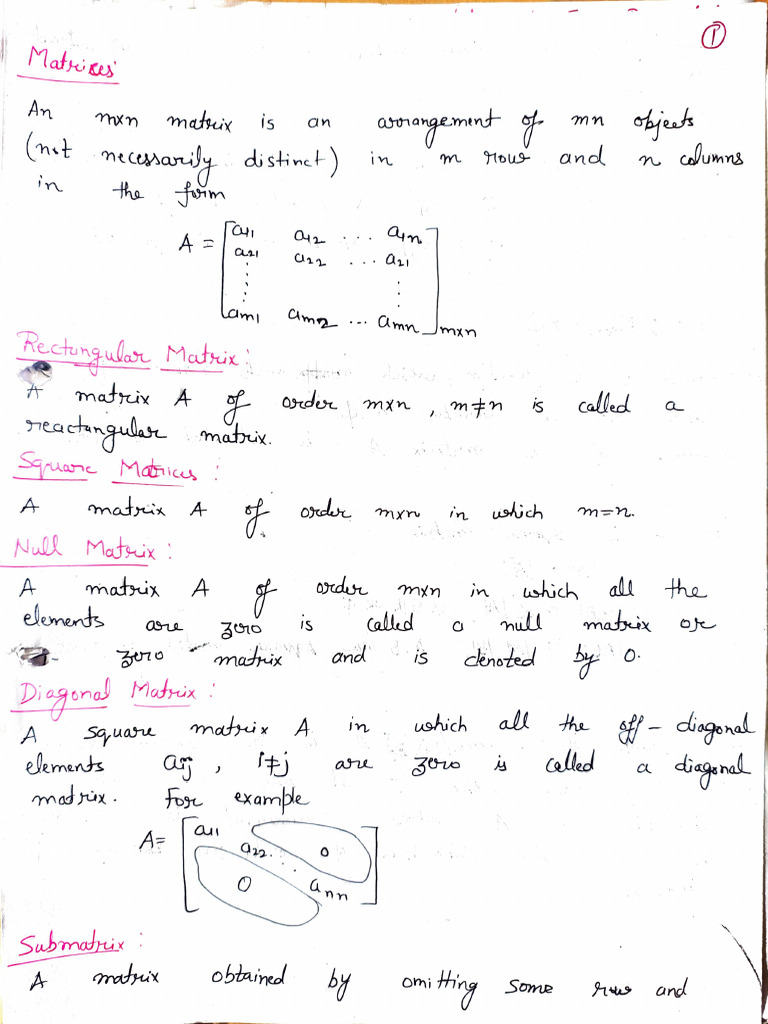 ①
Matrices
An mxn matrix is an arrangement of mn objects
(not necessarily distinct) in m row and n columns
in the form
A = [a11 a12 ... a1n
a21 a22 ... a21
⋮ ⋮
am1 am2 ... amn]mxn
Rectungular Matrix:
A matrix A of order mxn, m≠n is called a
reactangular matrix.
Square Matrices:
A matrix A of order mxn in which m=n.
Null Matrix:
A matrix A of order mxn in which all the
elements are zero is called a null matrix or
zero matrix and is denoted by 0.
Diagonal Matrix:
A square matrix A in which all the off-diagonal
elements aij, i≠j are zero is called a diagonal
matrix. For example
A= [a11
a22... 0
0 ann]
Submatrix:
A matrix obtained by omitting some row and